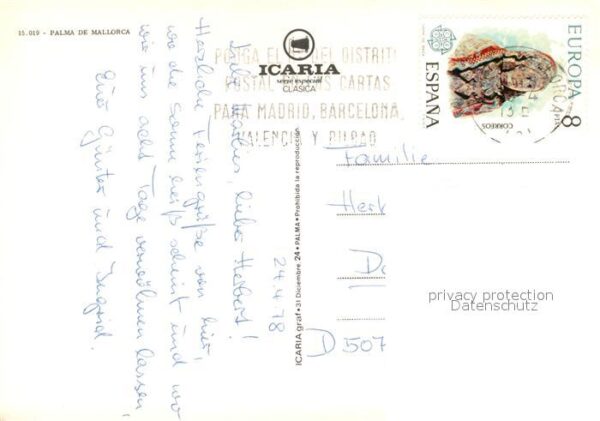 15.019 - PALMA DE MALLORCA
ICARIA
serie especial
CLASICA
PONGA EL DEL DISTRITO
POSTAL EN SUS CARTAS
PARA MADRID, BARCELONA,
VALENCIA Y BILBAO
ESPAÑA
CORREOS
EUROPA 8
PTA
24.4.78
lieber Herbert!
Herzliche Feriengrüße von hier,
wo die Sonne heiß scheint und wo
wir uns acht Tage verwöhnen lassen,
Eure Günter und Ingrid.
ICARIA graf • 31 Diciembre 24 • PALMA • Prohibida la reproducción
Familie
Herk
D 507
privacy protection
Datenschutz